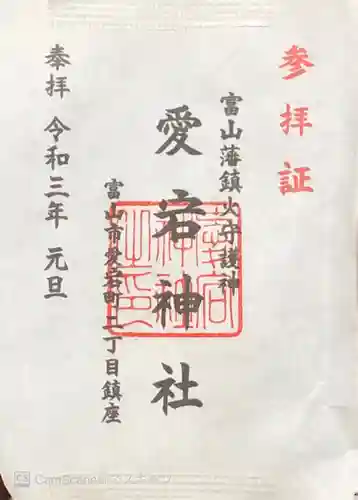 参拝証
富山藩鎮火守護神
愛宕神社
富山市愛宕町二丁目鎮座
奉拝 令和三年 元旦
愛宕
神社
之印
CS CamScanner